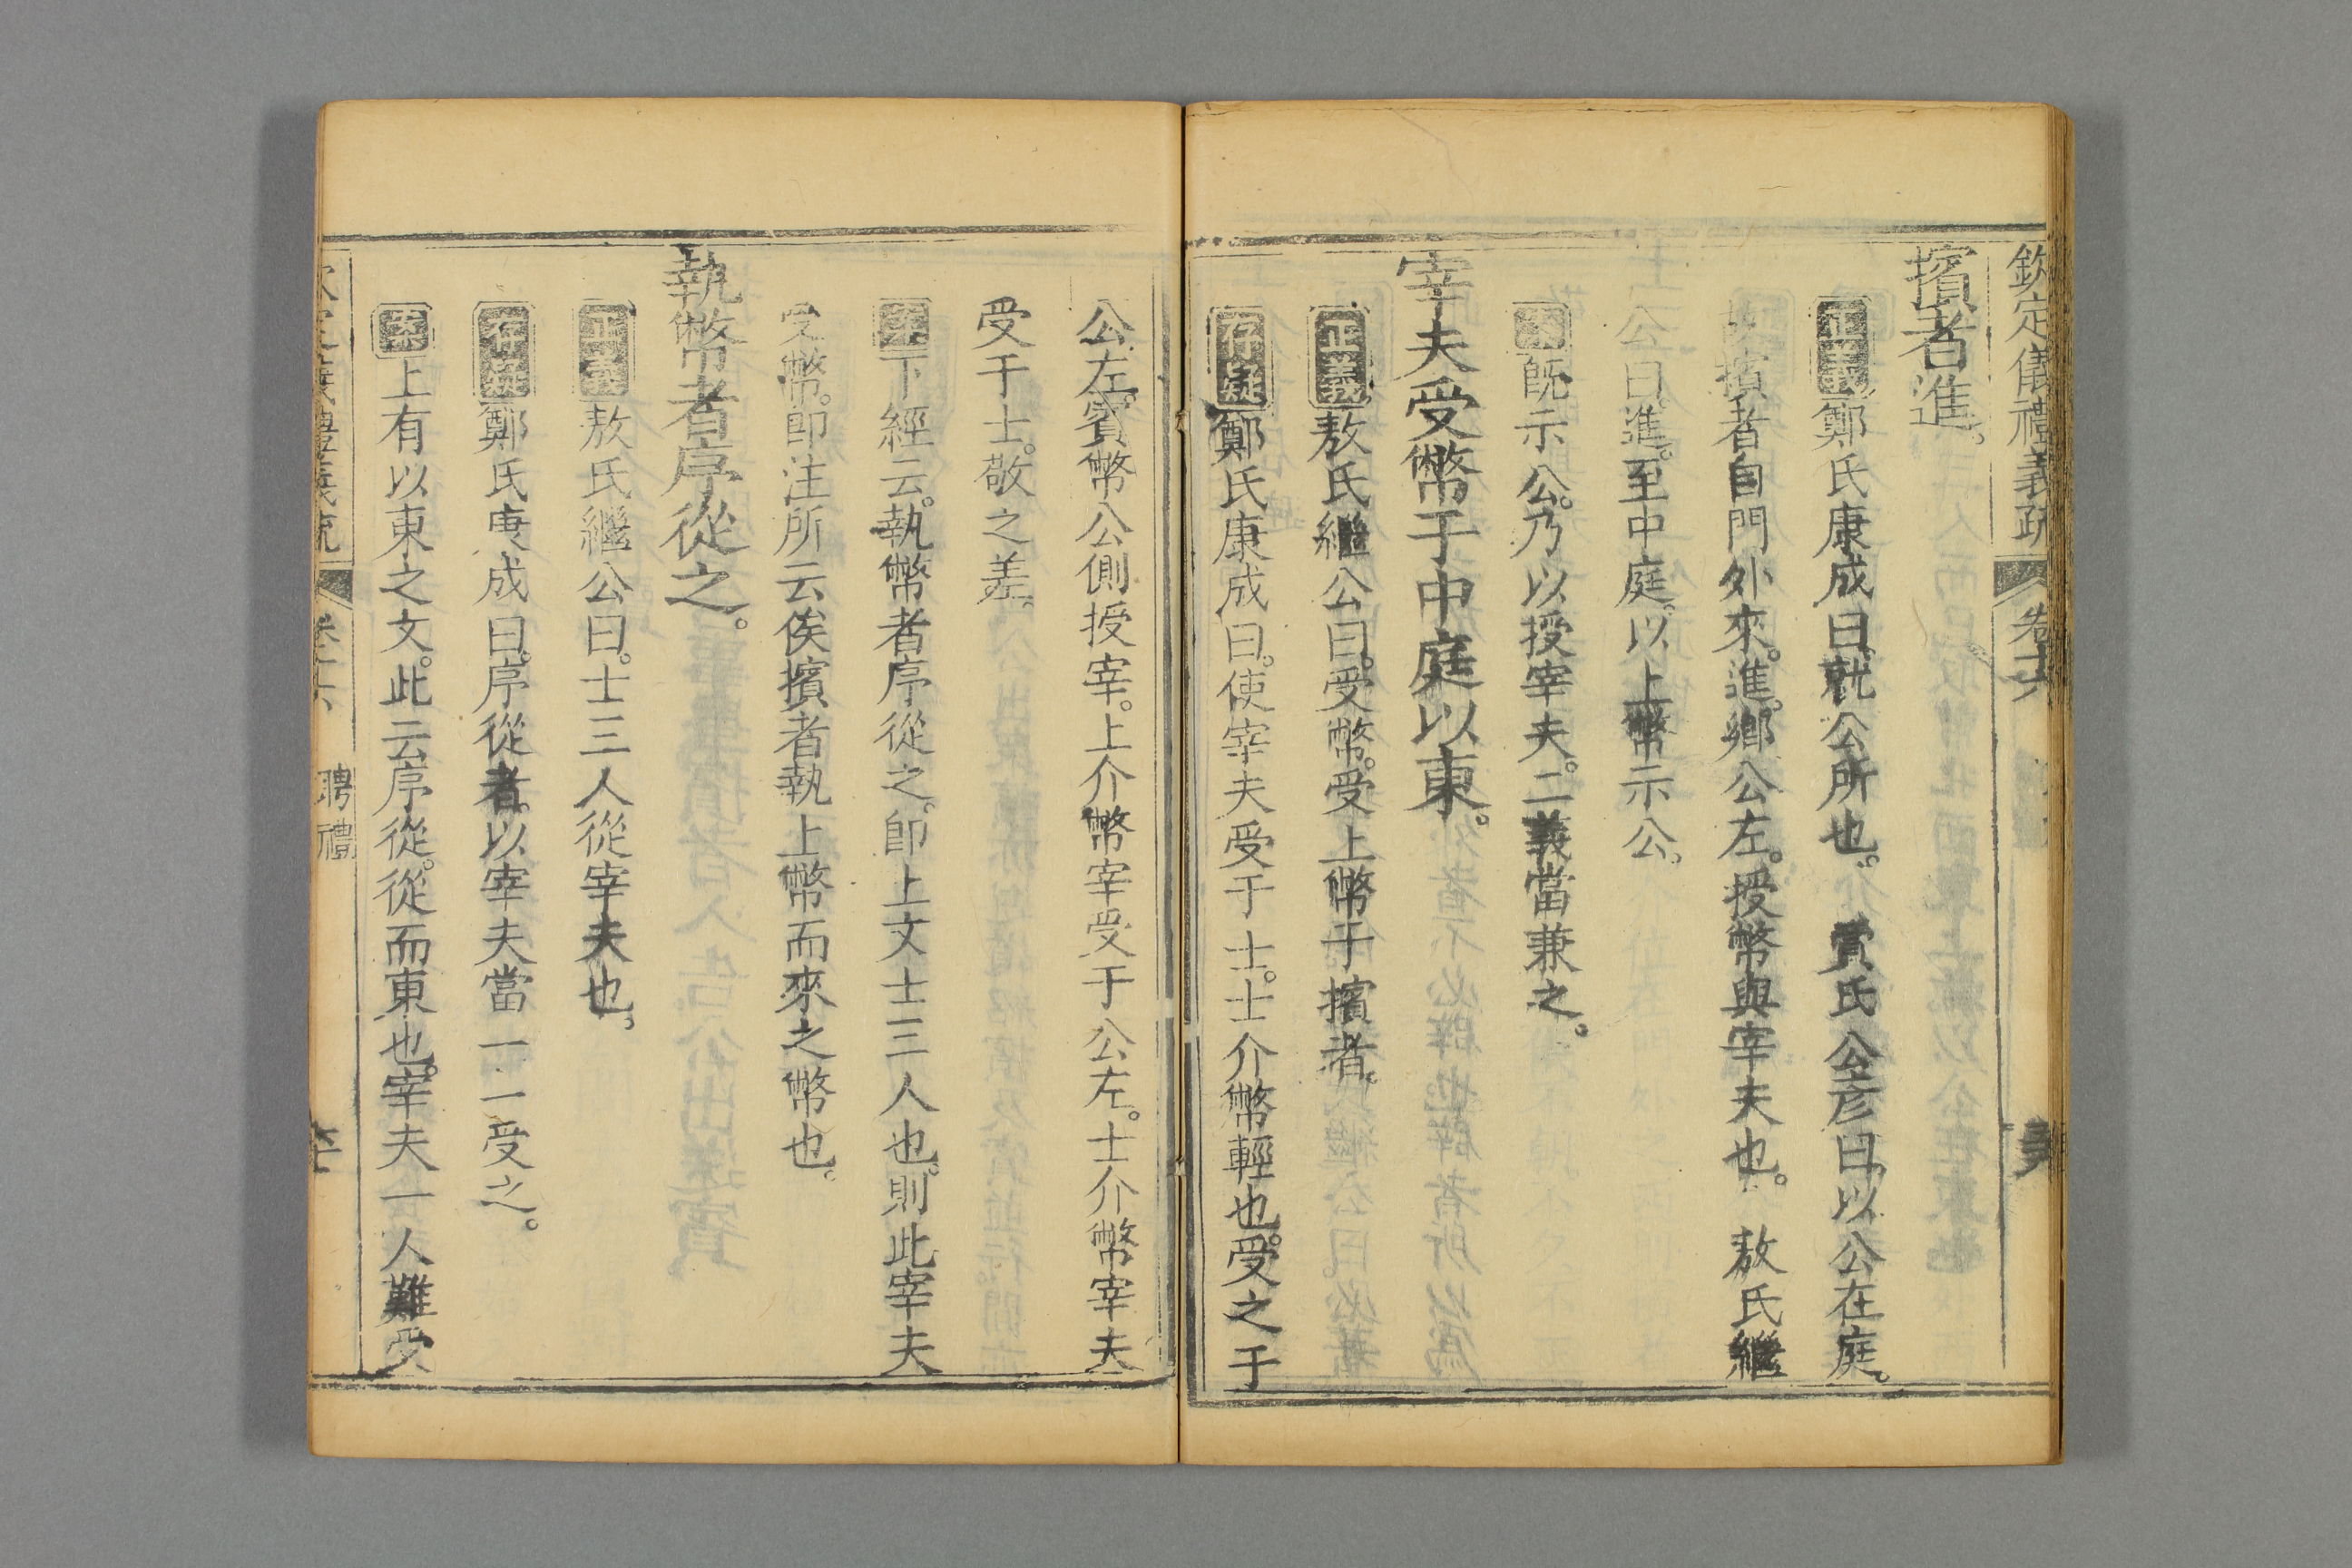 欽定儀禮義疏 卷十六
擯者進。
正義鄭氏康成曰。就公所也。 賈氏公彥曰。以公在庭。
故擯者自門外來。進。鄉公左。授幣與宰夫也。 敖氏繼
公曰。進。至中庭。以上幣示公。
案既示公。乃以授宰夫。二義當兼之。
宰夫受幣于中庭以東。
正義敖氏繼公曰。受幣。受上幣于擯者。
存疑鄭氏康成曰。使宰夫受于士。士介幣輕也。受之于
公左。賓幣公側授宰。上介幣宰受于公左。士介幣宰夫
受于士。敬之差。
案下經云。執幣者序從之。卽上文士三人也。則此宰夫
受幣。卽注所云俟擯者執上幣而來之幣也。
執幣者序從之。
正義敖氏繼公曰。士三人從宰夫也。
存疑鄭氏康成曰。序從者。以宰夫當一一受之。
案上有以東之文。此云序從。從而東也。宰夫一人難受
欽定儀禮義疏 卷十六 聘禮